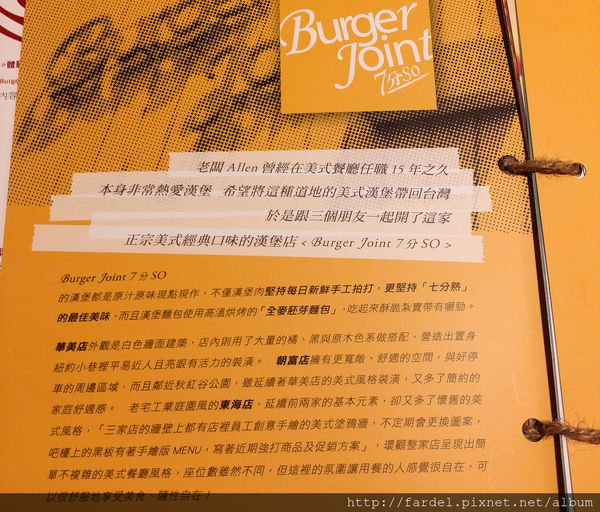 Burger
Joint
7分SO
老闆 Allen 曾經在美式餐廳任職 15 年之久
本身非常熱愛漢堡 希望將這種道地的美式漢堡帶回台灣
於是跟三個朋友一起開了這家
正宗美式經典口味的漢堡店 < Burger Joint 7 分 SO >
Burger Joint 7 分 SO
的漢堡都是原汁原味現點現作，不僅漢堡肉堅持每日新鮮手工拍打，更堅持「七分熟」
的最佳美味，而且漢堡麵包使用高溫烘烤的「全麥胚芽麵包」，吃起來酥脆紮實帶有嚼勁。
華美店外觀是白色牆面建築，店內則用了大量的橘、黑與原木色系做搭配，營造出置身
紐約小巷裡平易近人且亮眼有活力的裝潢。 朝富店擁有更寬敞、舒適的空間，與好停
車的周邊區域，而且鄰近秋紅谷公園，雖延續著華美店的美式風格裝潢，又多了簡約的
家庭舒適感。 老宅工業庭園風的東海店，延續前兩家的基本元素，卻又多了懷舊的美
式風格，「三家店的牆壁上都有店裡員工創意手繪的美式塗鴉牆，不定期會更換圖案，
吧檯上的黑板有著手繪版 MENU，寫著近期強打商品及促銷方案」，環顧整家店呈現出簡
單不複雜的美式餐廳風格，座位數雖然不同，但這裡的氛圍讓用餐的人感覺很自在，可
以很舒服地享受美食、隨性自在！
http://fardel.pixnet.net/album